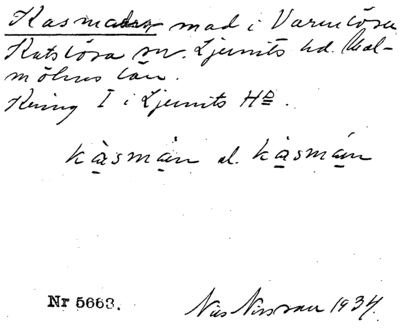 Kasma mad i Varmlösa
Katslösa sn. Ljunits hd. Mal-
möhus län.
Kring I i Ljunits HD.
kàsmán el. kàsmán
Nr 5663.
Nils Nilsson 1934.